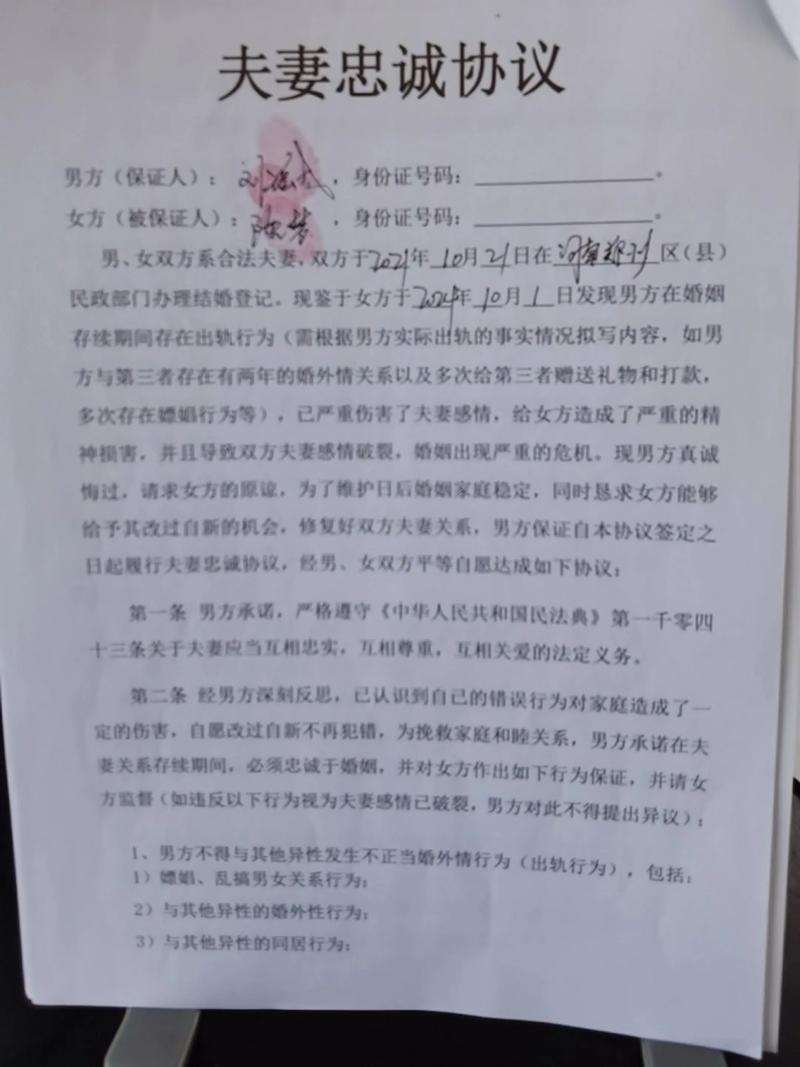 夫妻忠诚协议
男方（保证人）：刘，身份证号码：____________。
女方（被保证人）：陈梦，身份证号码：____________。
男、女双方系合法夫妻，双方于2021年10月21日在河南郑州区（县）
民政部门办理结婚登记。现鉴于女方于2024年10月1日发现男方在婚姻
存续期间存在出轨行为（需根据男方实际出轨的事实情况拟写内容，如男
方与第三者存在有两年的婚外情关系以及多次给第三者赠送礼物和打款，
多次存在嫖娼行为等），已严重伤害了夫妻感情，给女方造成了严重的精
神损害，并且导致双方夫妻感情破裂，婚姻出现严重的危机。现男方真诚
悔过，请求女方的原谅，为了维护日后婚姻家庭稳定，同时恳求女方能够
给予其改过自新的机会，修复好双方夫妻关系，男方保证自本协议签定之
日起履行夫妻忠诚协议，经男、女双方平等自愿达成如下协议：
第一条 男方承诺，严格遵守《中华人民共和国民法典》第一千零四
十三条关于夫妻应当互相忠实，互相尊重，互相关爱的法定义务。
第二条 经男方深刻反思，已认识到自己的错误行为对家庭造成了一
定的伤害，自愿改过自新不再犯错，为挽救家庭和睦关系，男方承诺在夫
妻关系存续期间，必须忠诚于婚姻，并对女方作出如下行为保证，并请女
方监督（如违反以下行为视为夫妻感情已破裂，男方对此不得提出异议）：
1、男方不得与其他异性发生不正当婚外情行为（出轨行为），包括：
1）嫖娼、乱搞男女关系行为；
2）与其他异性的婚外性行为；
3）与其他异性的同居行为；